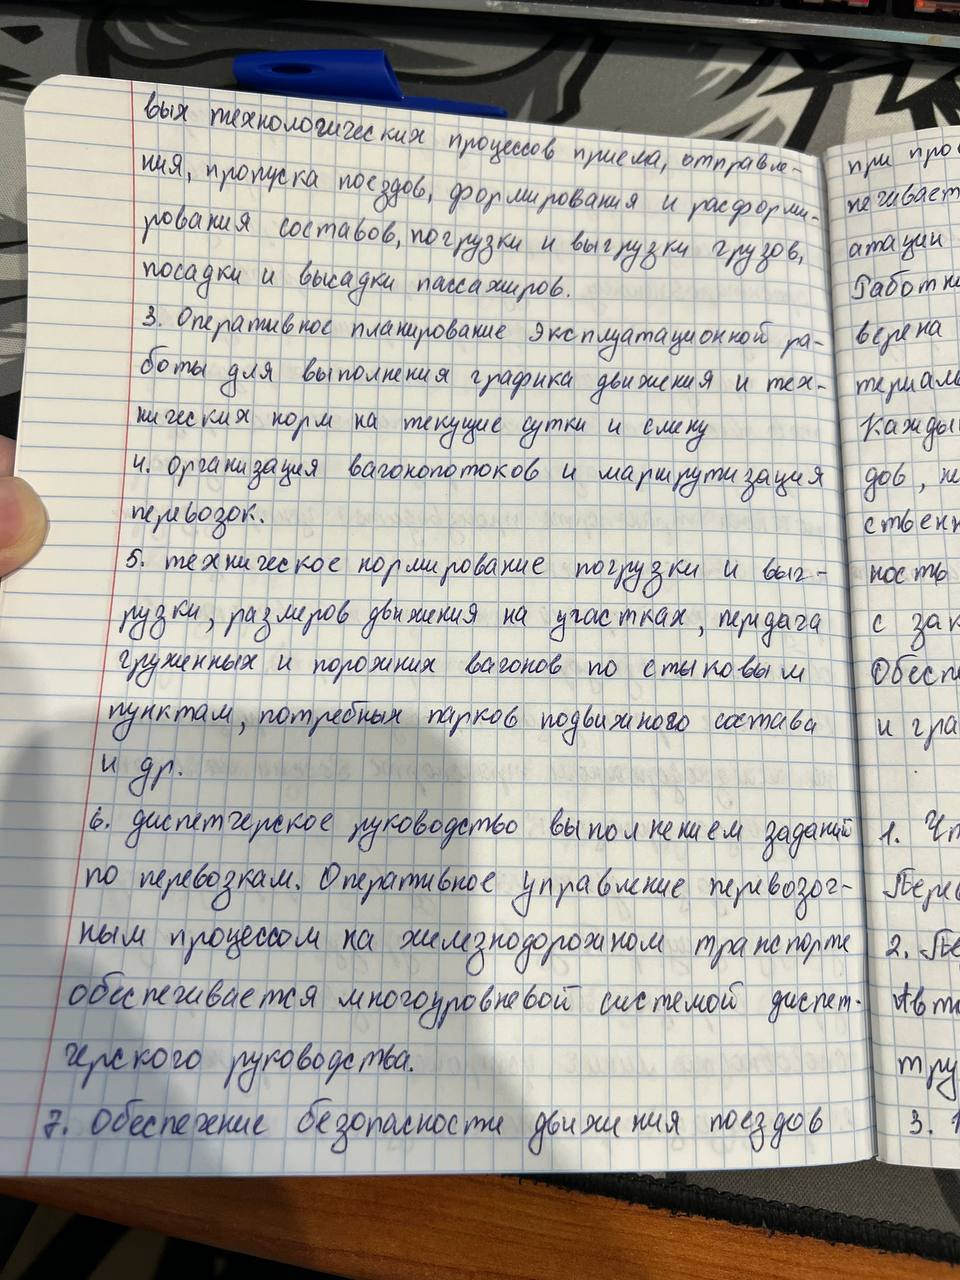 вых технологических процессов приема, отправле-
ния, пропуска поездов, формирования и расформи-
рования составов, погрузки и выгрузки грузов,
посадки и высадки пассажиров.
3. Оперативное планирование эксплуатационной ра-
боты для выполнения графика движения и тех-
нических норм на текущие сутки и смену
4. организация вагонопотоков и маршрутизация
перевозок.
5. техническое нормирование погрузки и выг-
рузки, размеров движения на участках, передача
груженных и порожних вагонов по стыковым
пунктам, потребных парков подвижного состава
и др.
6. диспетчерское руководство выполнением заданий
по перевозкам. Оперативное управление перевозоч-
ным процессом на железнодорожном транспорте
обеспечивается многоуровневой системой диспет-
черского руководства.
7. обеспечение безопасности движения поездов
при про
печивает
атации
Работни
верена
териаль
Кажды
дов, не
ственн
ность
с зак
Обеспе
и гра
1. Чт
Перев
2. Пе
Авто
тру
3.